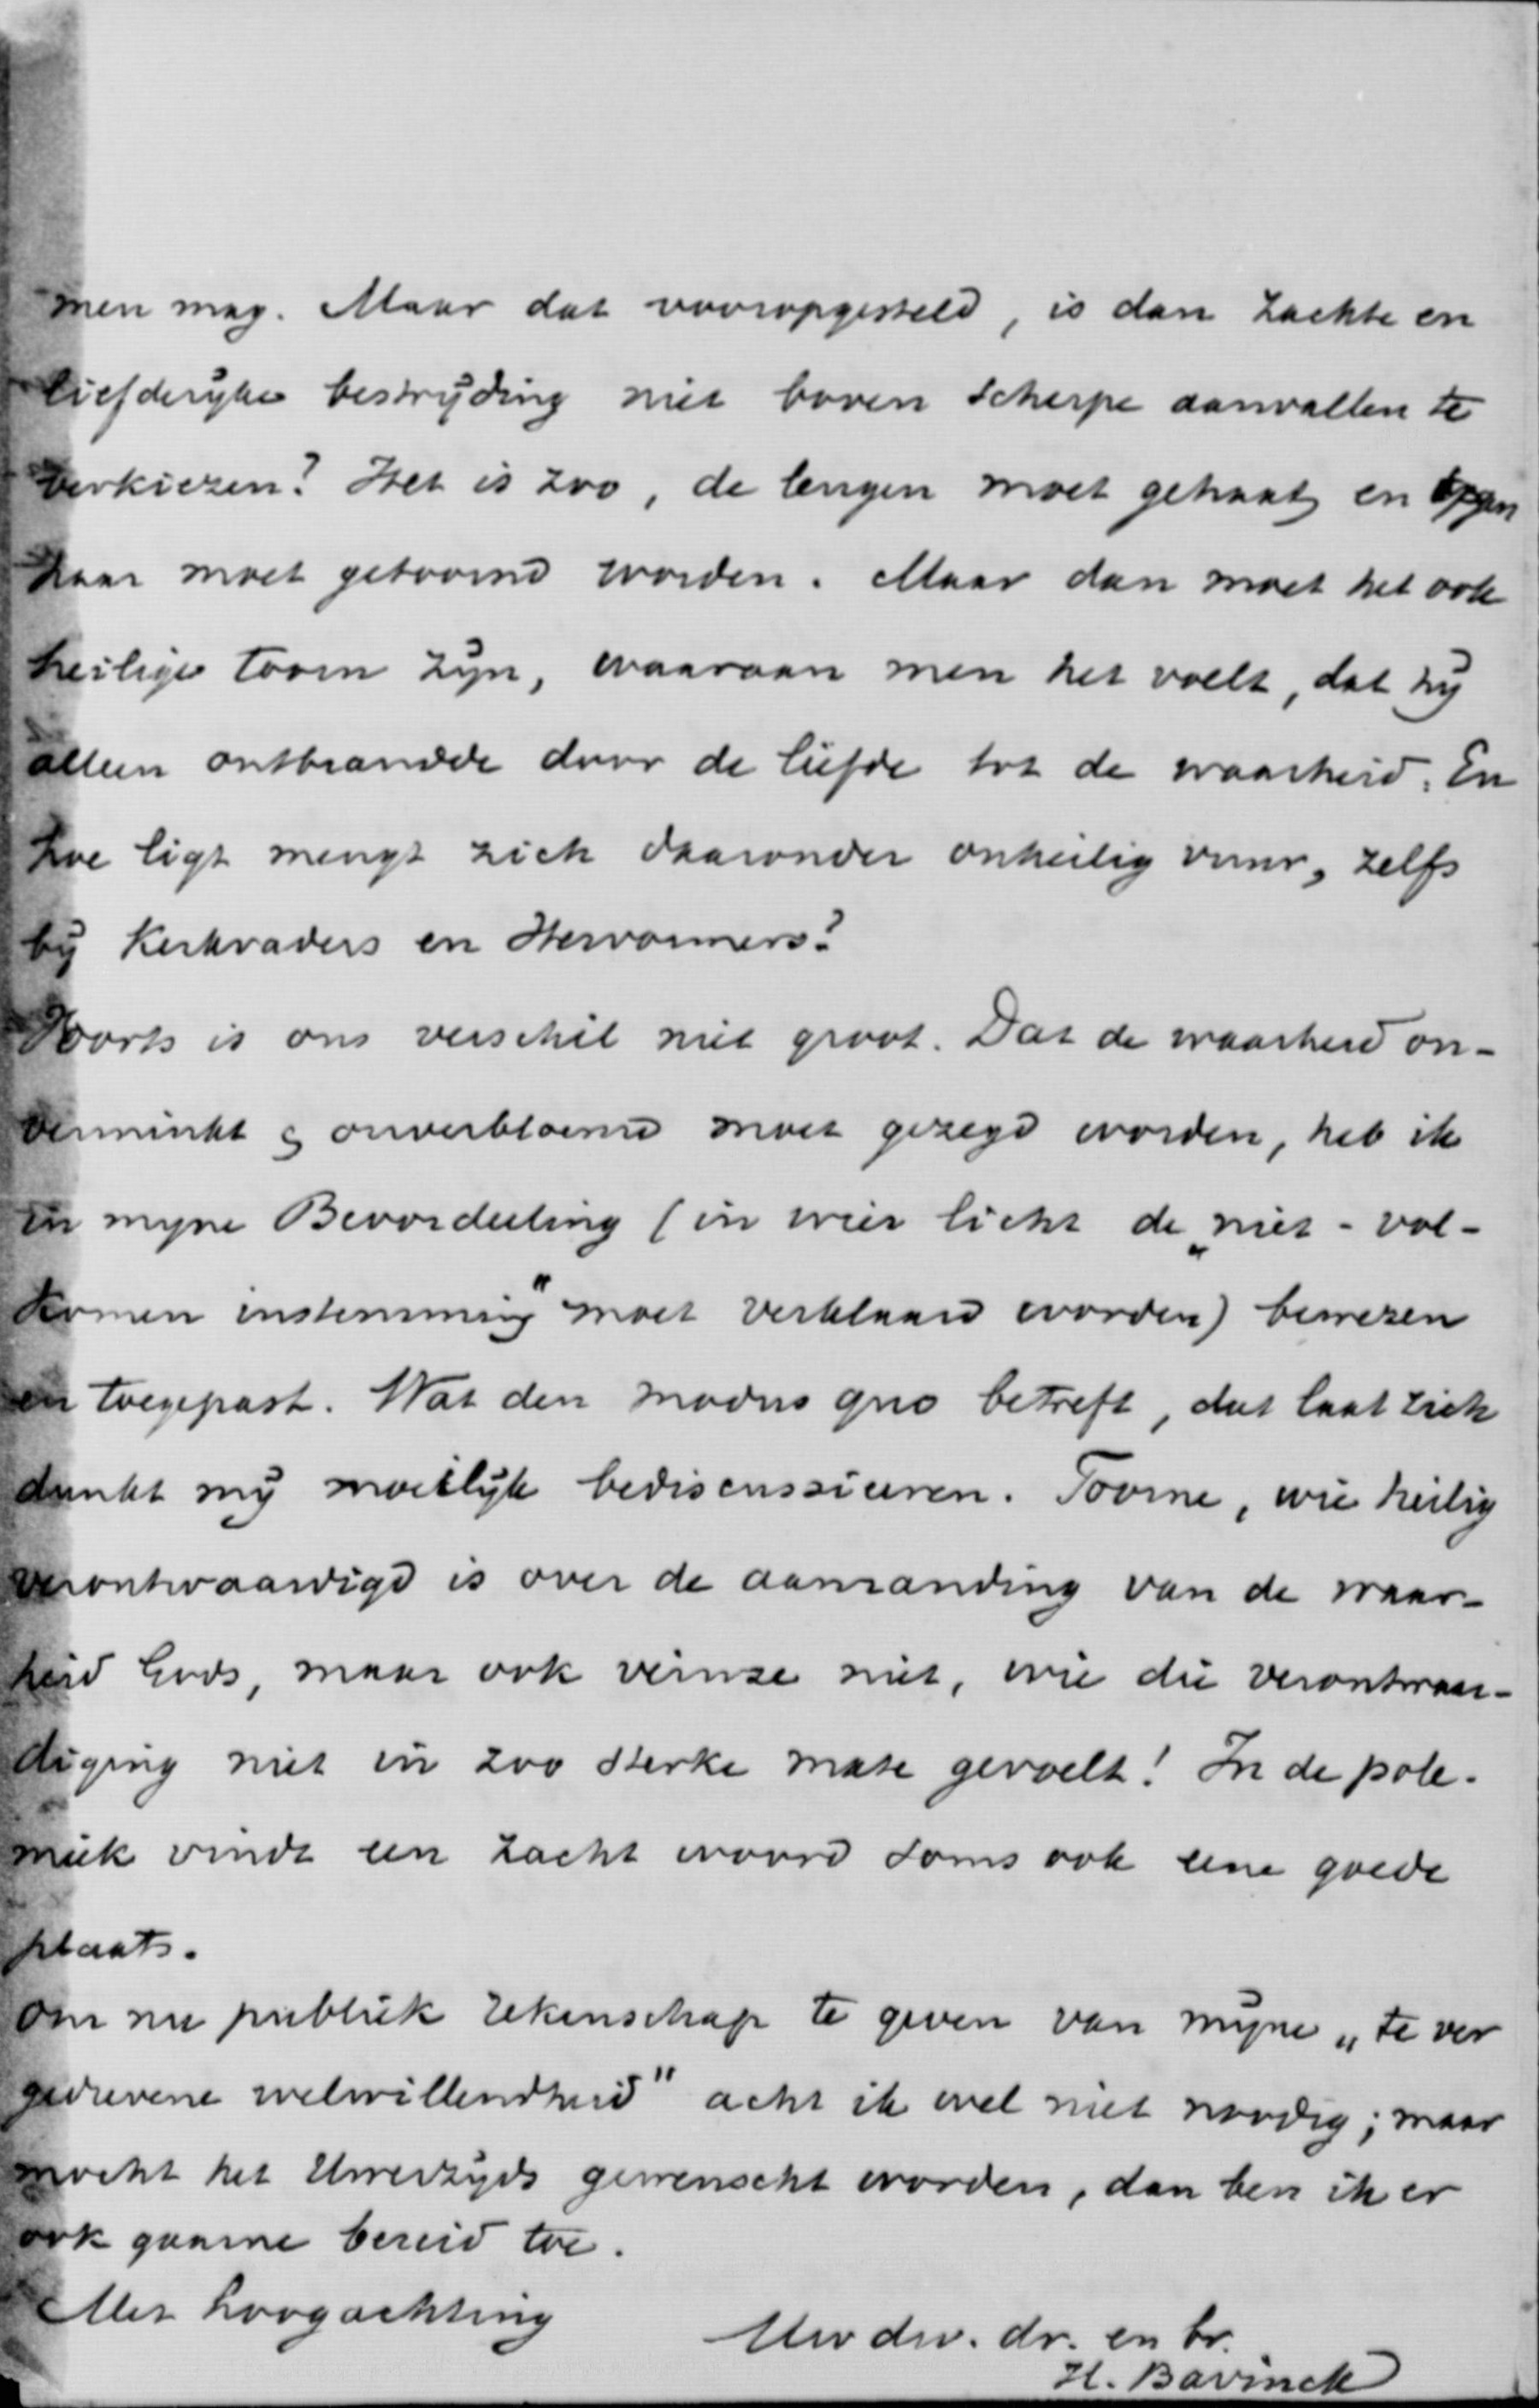 men mag. Maar dat vooropgesteld, is dan zachte en
liefderyke bestryding niet boven scherpe aanvallen te
verkiezen? Het is zoo, de leugen moet gehaat en tegen
haar moet getoornd worden. Maar dan moet het ook
heilige toorn zyn, waaraan men het voelt, dat hy
alleen ontbrandde door de liefde tot de waarheid. En
hoe ligt mengt zich daaronder onheilig vuur, zelfs
by Kerkvaders en Hervormers?
Voorts is ons verschil niet groot. Dat de waarheid on-
verminkt & onverbloemd moet gezegd worden, heb ik
in myne Beoordeeling (in wier licht de „niet-vol-
komen instemming" moet verklaard worden) bewezen
en toegepast. Wat den modus quo betreft, dat laat zich
dunkt my moeilyk bediscussieeren. Toorne, wie heilig
verontwaardigd is over de aanranding van de waar-
heid Gods, maar ook veinze niet, wie die verontwaar-
diging niet in zoo sterke mate gevoelt! In de pole-
miek vindt een zacht woord soms ook eene goede
plaats.
Om nu publiek rekenschap te geven van myne „te ver
gedrevene welwillendheid" acht ik wel niet noodig; maar
mocht het Uwerzyds gewenscht worden, dan ben ik er
ook gaarne bereid toe.
Met hoogachting
Uw dw. dr. en br.
H. Bavinck